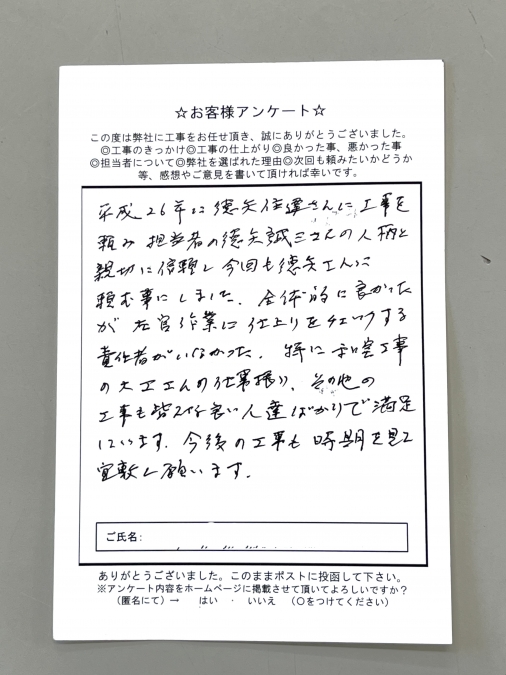 ☆お客様アンケート☆
この度は弊社に工事をお任せ頂き、誠にありがとうございました。
◎工事のきっかけ◎工事の仕上がり◎良かった事、悪かった事
◎担当者について◎弊社を選ばれた理由◎次回も頼みたいかどうか
等、感想やご意見を書いて頂ければ幸いです。
平成26年に徳矢住建さんに工事を
頼み担当者の徳矢誠三さんの人柄と
親切に信頼し今回も徳矢さんに
頼む事にしました。全体的に良かった
が左官作業に仕上りをチェックする
責任者がいなかった。特に和室工事
の大工さんの仕事振り、その他の
工事も皆さん良い人達ばかりで満足
しています。今後の工事も時期を見て
宜敷く願います。
ご氏名:
ありがとうございました。このままポストに投函して下さい。
※アンケート内容をホームページに掲載させて頂いてよろしいですか？
(匿名にて)→ はい ・ いいえ (〇をつけてください)